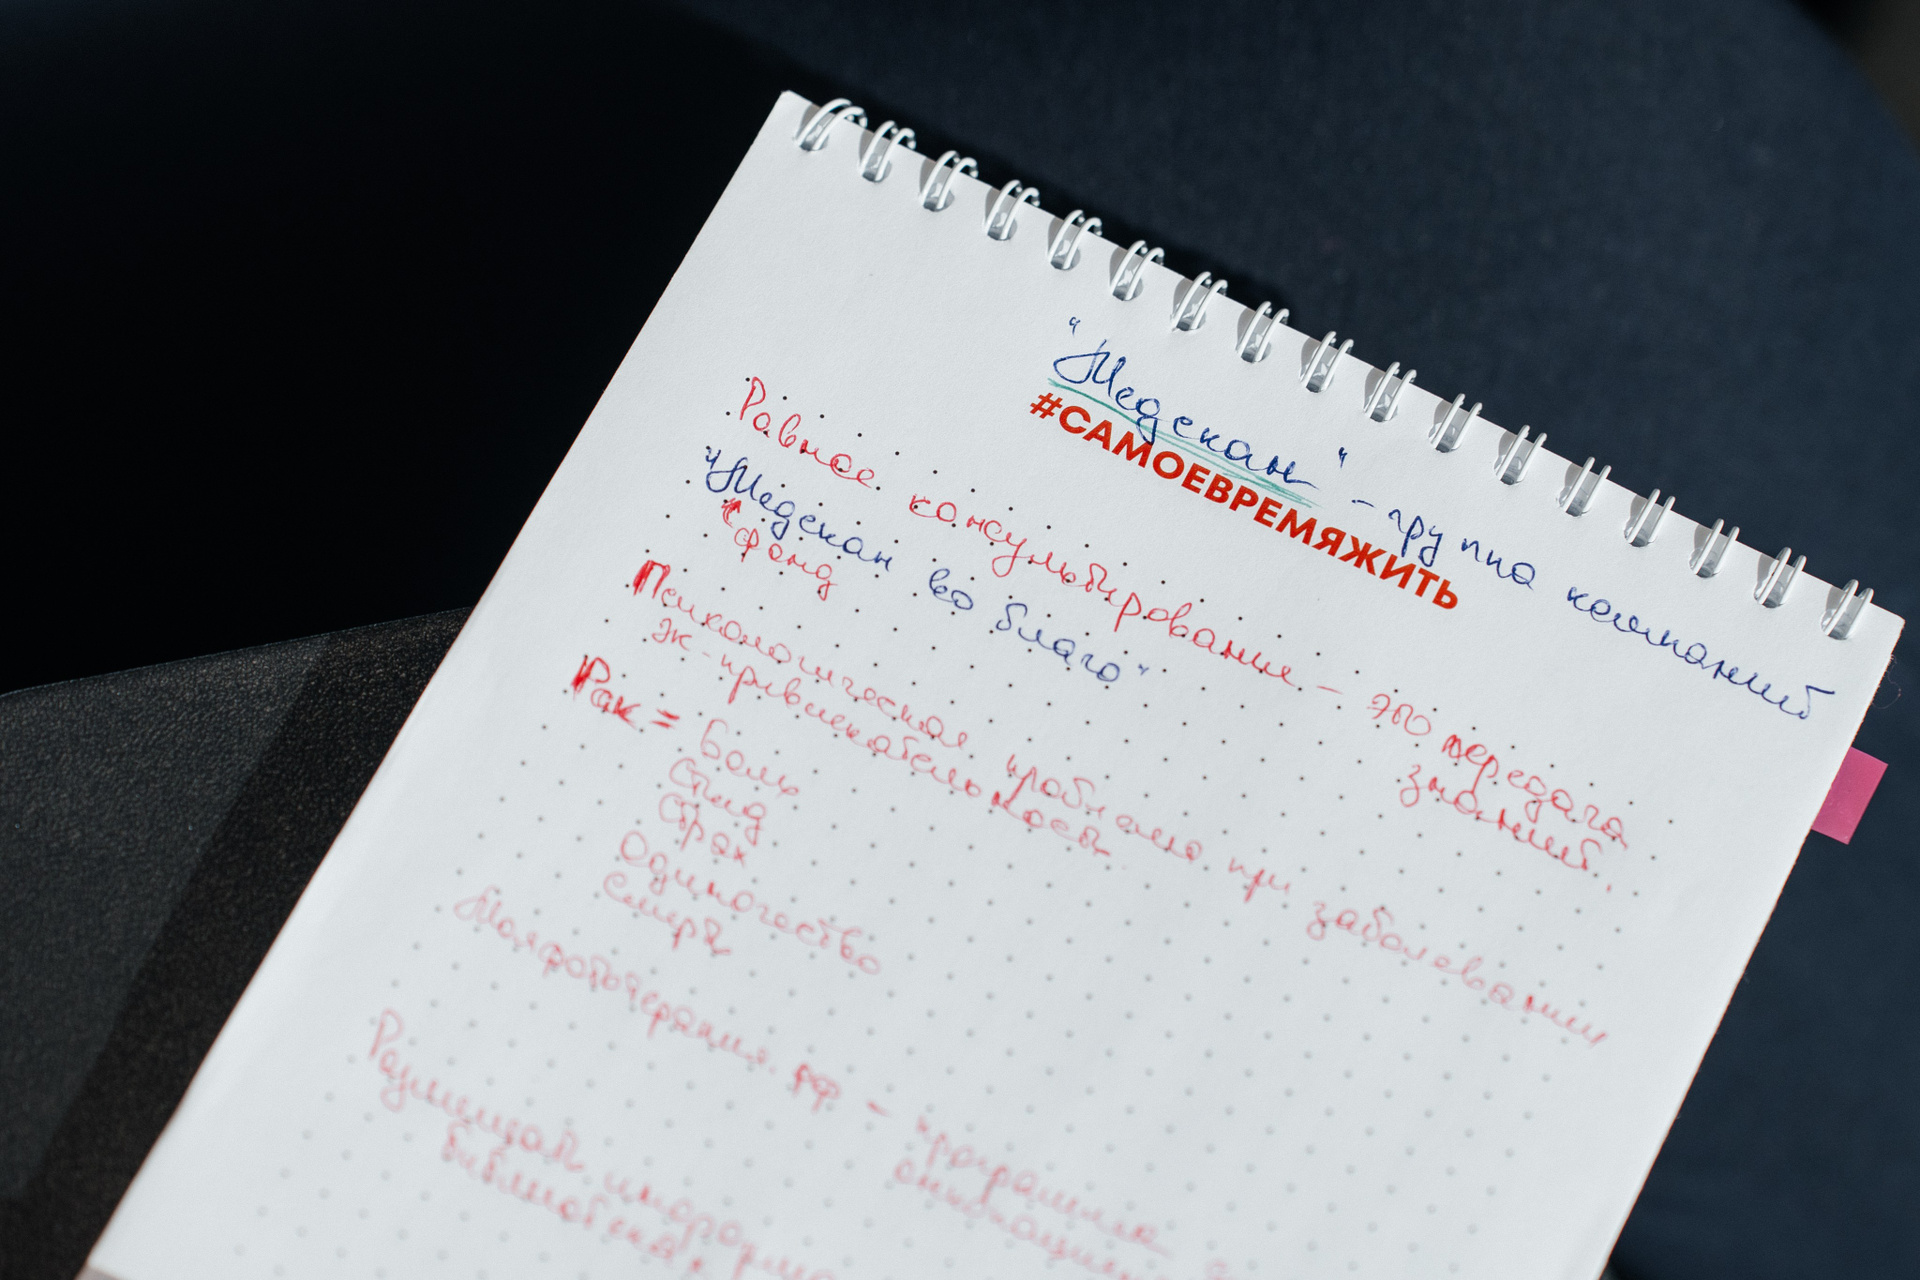 "Медскан" - группа компаний
#САМОЕВРЕМЯЖИТЬ
Равное консультирование - это передача
знаний.
"Медскан во благо"
фонд
Психологическая проблема при заболевании
эк-привлекательность
Рак = боль
стыд
страх
одиночество
смерть
Мояфототерапия.рф - программа
Размещая информа
библиотеках